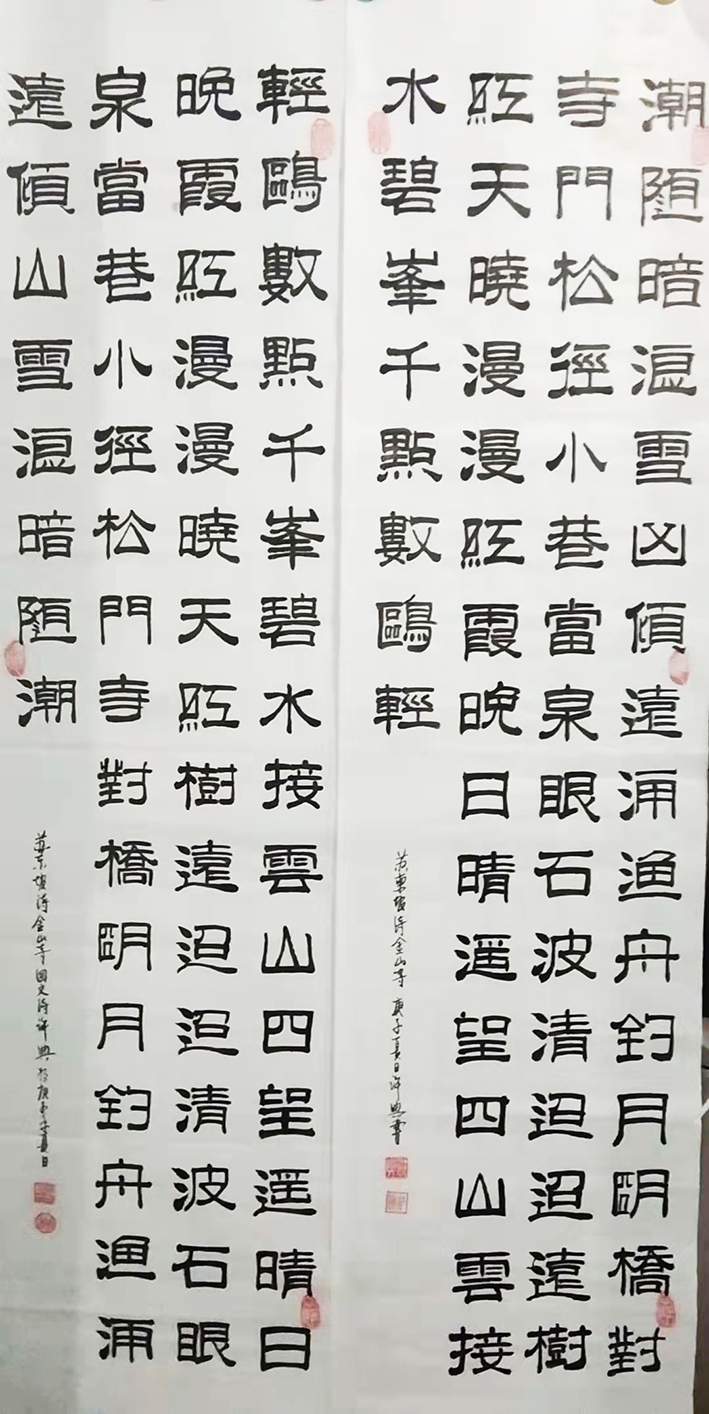 潮随暗浪雪凶傾遠浦渔舟釣月明橋對
寺門松徑小巷當泉眼石波清迢迢遠樹
紅天曉漫漫紅霞晚日晴遥望四山雲接
水碧峯千點數鷗輕
苏東坡诗金山寺 庚子夏日许興書
輕鷗數點千峯碧水接雲山四望遥晴日
晚霞紅漫漫曉天紅樹遠迢迢清波石眼
泉當巷小徑松門寺對橋明月釣舟渔浦
遠傾山雪浪暗随潮
苏东坡诗金山寺回文诗许興 庚子夏日